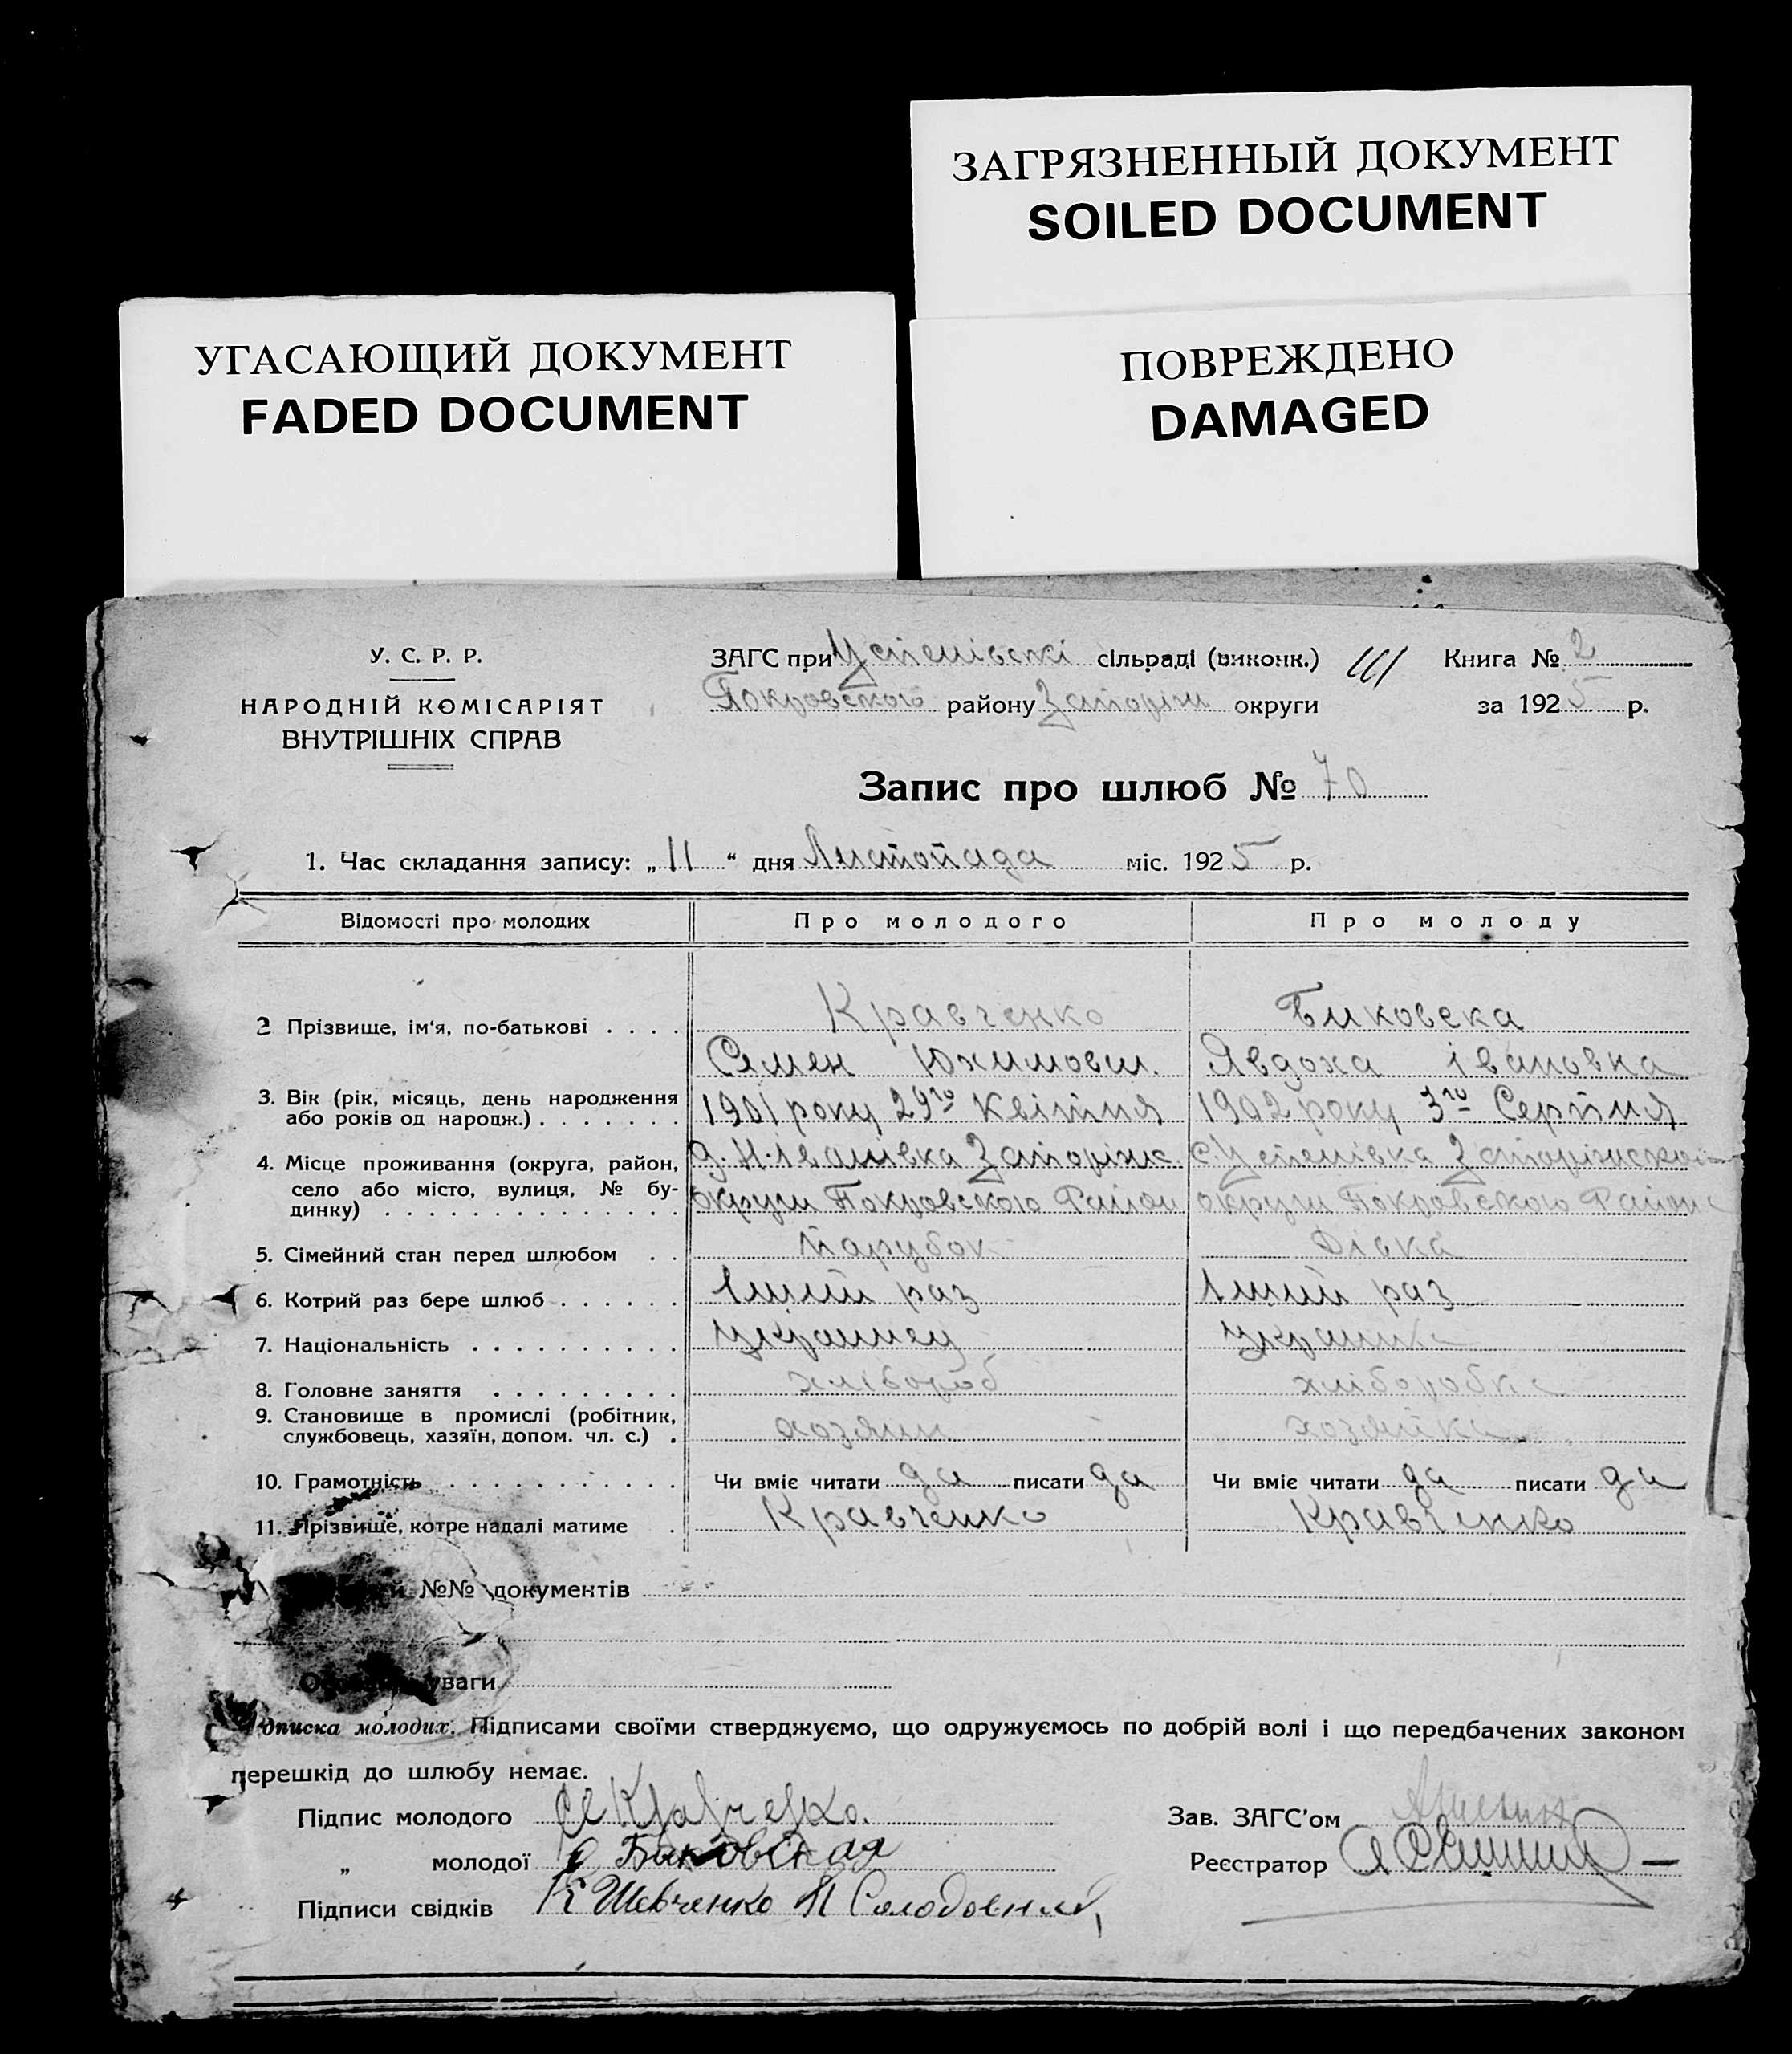 ЗАГРЯЗНЕННЫЙ ДОКУМЕНТ
SOILED DOCUMENT
УГАСАЮЩИЙ ДОКУМЕНТ
FADED DOCUMENT
ПОВРЕЖДЕНО
DAMAGED
У. С. Р. Р.
НАРОДНІЙ КОМІСАРІЯТ
ВНУТРІШНІХ СПРАВ
ЗАГС при Успенівскі сільраді (виконк.) Книга № 2
Покровского району Запоріж округи за 1925 р.
Запис про шлюб № 70
1. Час складання запису: „11“ дня Листопада міс. 1925 р.
Відомості про молодих Про молодого Про молоду
2 Прізвище, ім'я, по-батькові . . . . Кравченко Биковска
Семен Юхимович. Явдоха івановна
3. Вік (рік, місяць, день народження 1901 року 29го Квітня 1902 року 3го Серпня
або років од народж.) . . . . . . .
4. Місце проживання (округа, район, Н. іванівка Запоріжс с. Успенівка Запоріжской
село або місто, вулиця, № бу- округи Покровского Район округи Покровского Район
динку) . . . . . . . . . . . . . .
5. Сімейний стан перед шлюбом . . Парубок Дівка
6. Котрий раз бере шлюб . . . . . . раз раз
7. Національність . . . . . . . . . . украинец украинка
8. Головне заняття . . . . . . . . . хлібороб хліборобка
9. Становище в промислі (робітник, хозяин хозяйка
службовець, хазяїн, допом. чл. с.) .
10. Грамотність . . . . . . . . . . . Чи вміє читати да писати да Чи вміє читати да писати да
11. Прізвище, котре надалі матиме . Кравченко Кравченко
№№ документів
уваги
молодих. Підписами своїми стверджуємо, що одружуємось по добрій волі і що передбачених законом
перешкід до шлюбу немає.
Підпис молодого С Кравченко. Зав. ЗАГС'ом
„ молодої Биковская Реєстратор
Підписи свідків К Шевченко Н Солодовник